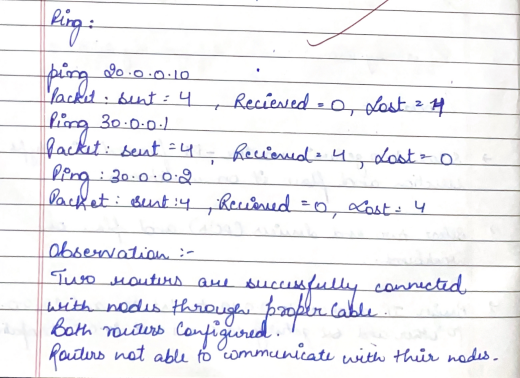 Ping :
ping 20.0.0.10
Packet : sent = 4 , Recieved = 0, Lost = 4
Ping 30.0.0.1
Packet : sent = 4 , Recieved = 4, Lost = 0
Ping : 30.0.0.2
Packet : sent : 4 , Recieved = 0, Lost = 4
Observation :-
Two routers are successfully connected
with nodes through proper Cable.
Both routers Configured.
Routers not able to communicate with their nodes.